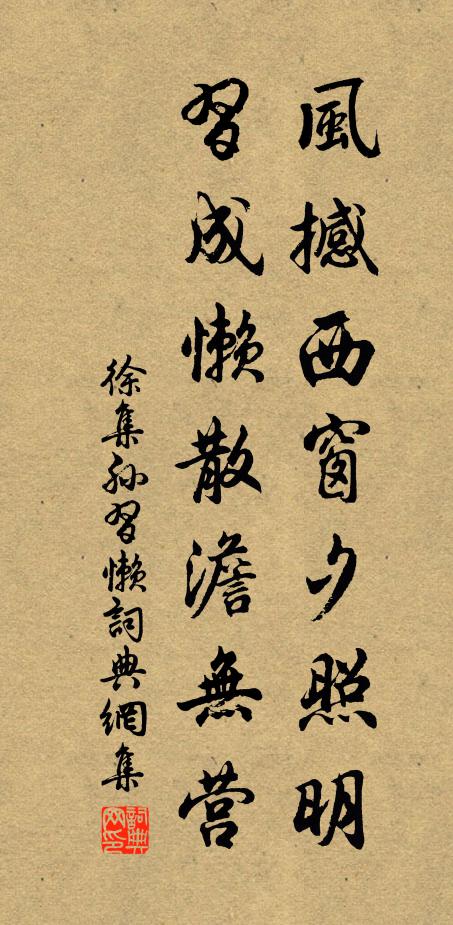 風撼西窗夕照明
習成懶散澹無营
徐集孙習懶詞典網集
詞典网印